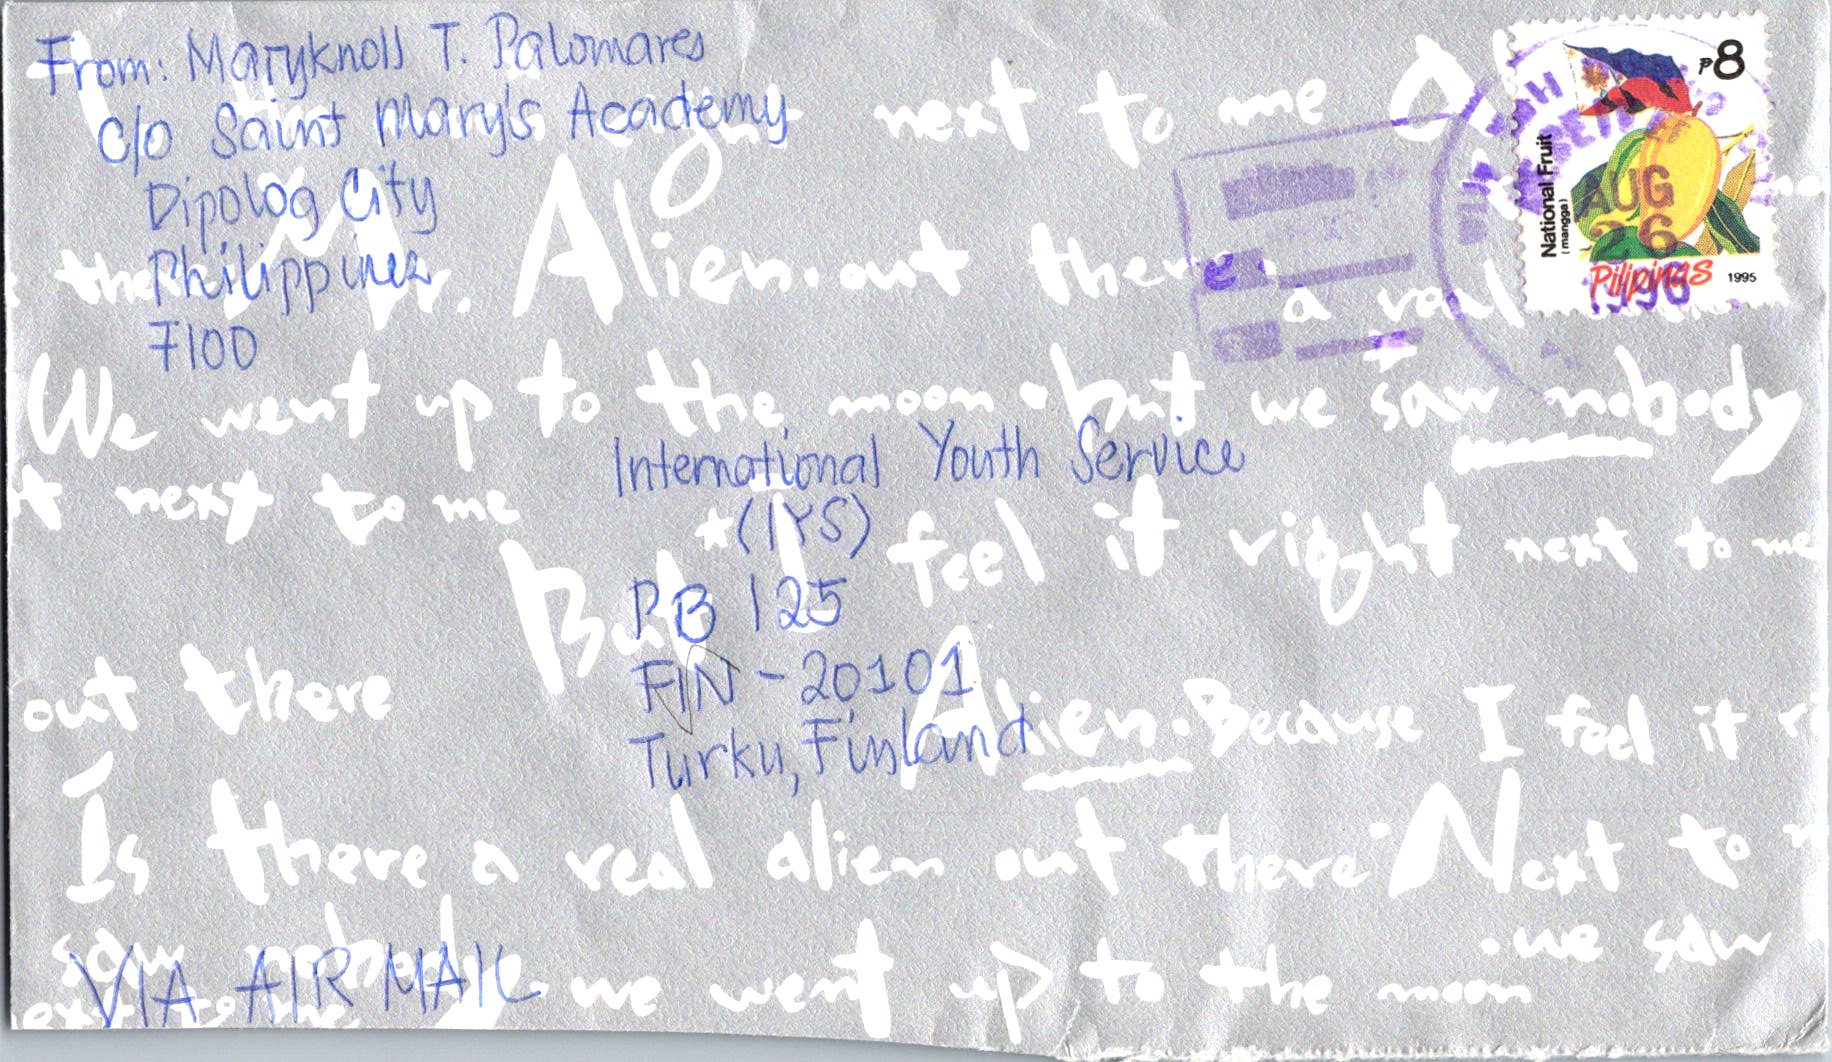 From: Maryknoll T. Palomares
c/o Saint Mary's Academy
Dipolog City
Philippines
7100
₱8
National Fruit
(mangga)
AUG
26
1996
Pilipinas
1995
next to me
the Mr. Alien. out there. a real
We went up to the moon. but we saw nobody
next to me
But I feel it right next to me
International Youth Service
*(IYS)
PB 125
FIN - 20101
Turku, Finland
out there
Alien. Because I feel it
Is there a real alien out there. Next to
we saw
saw nobody we went up to the moon
next to me
VIA AIR MAIL